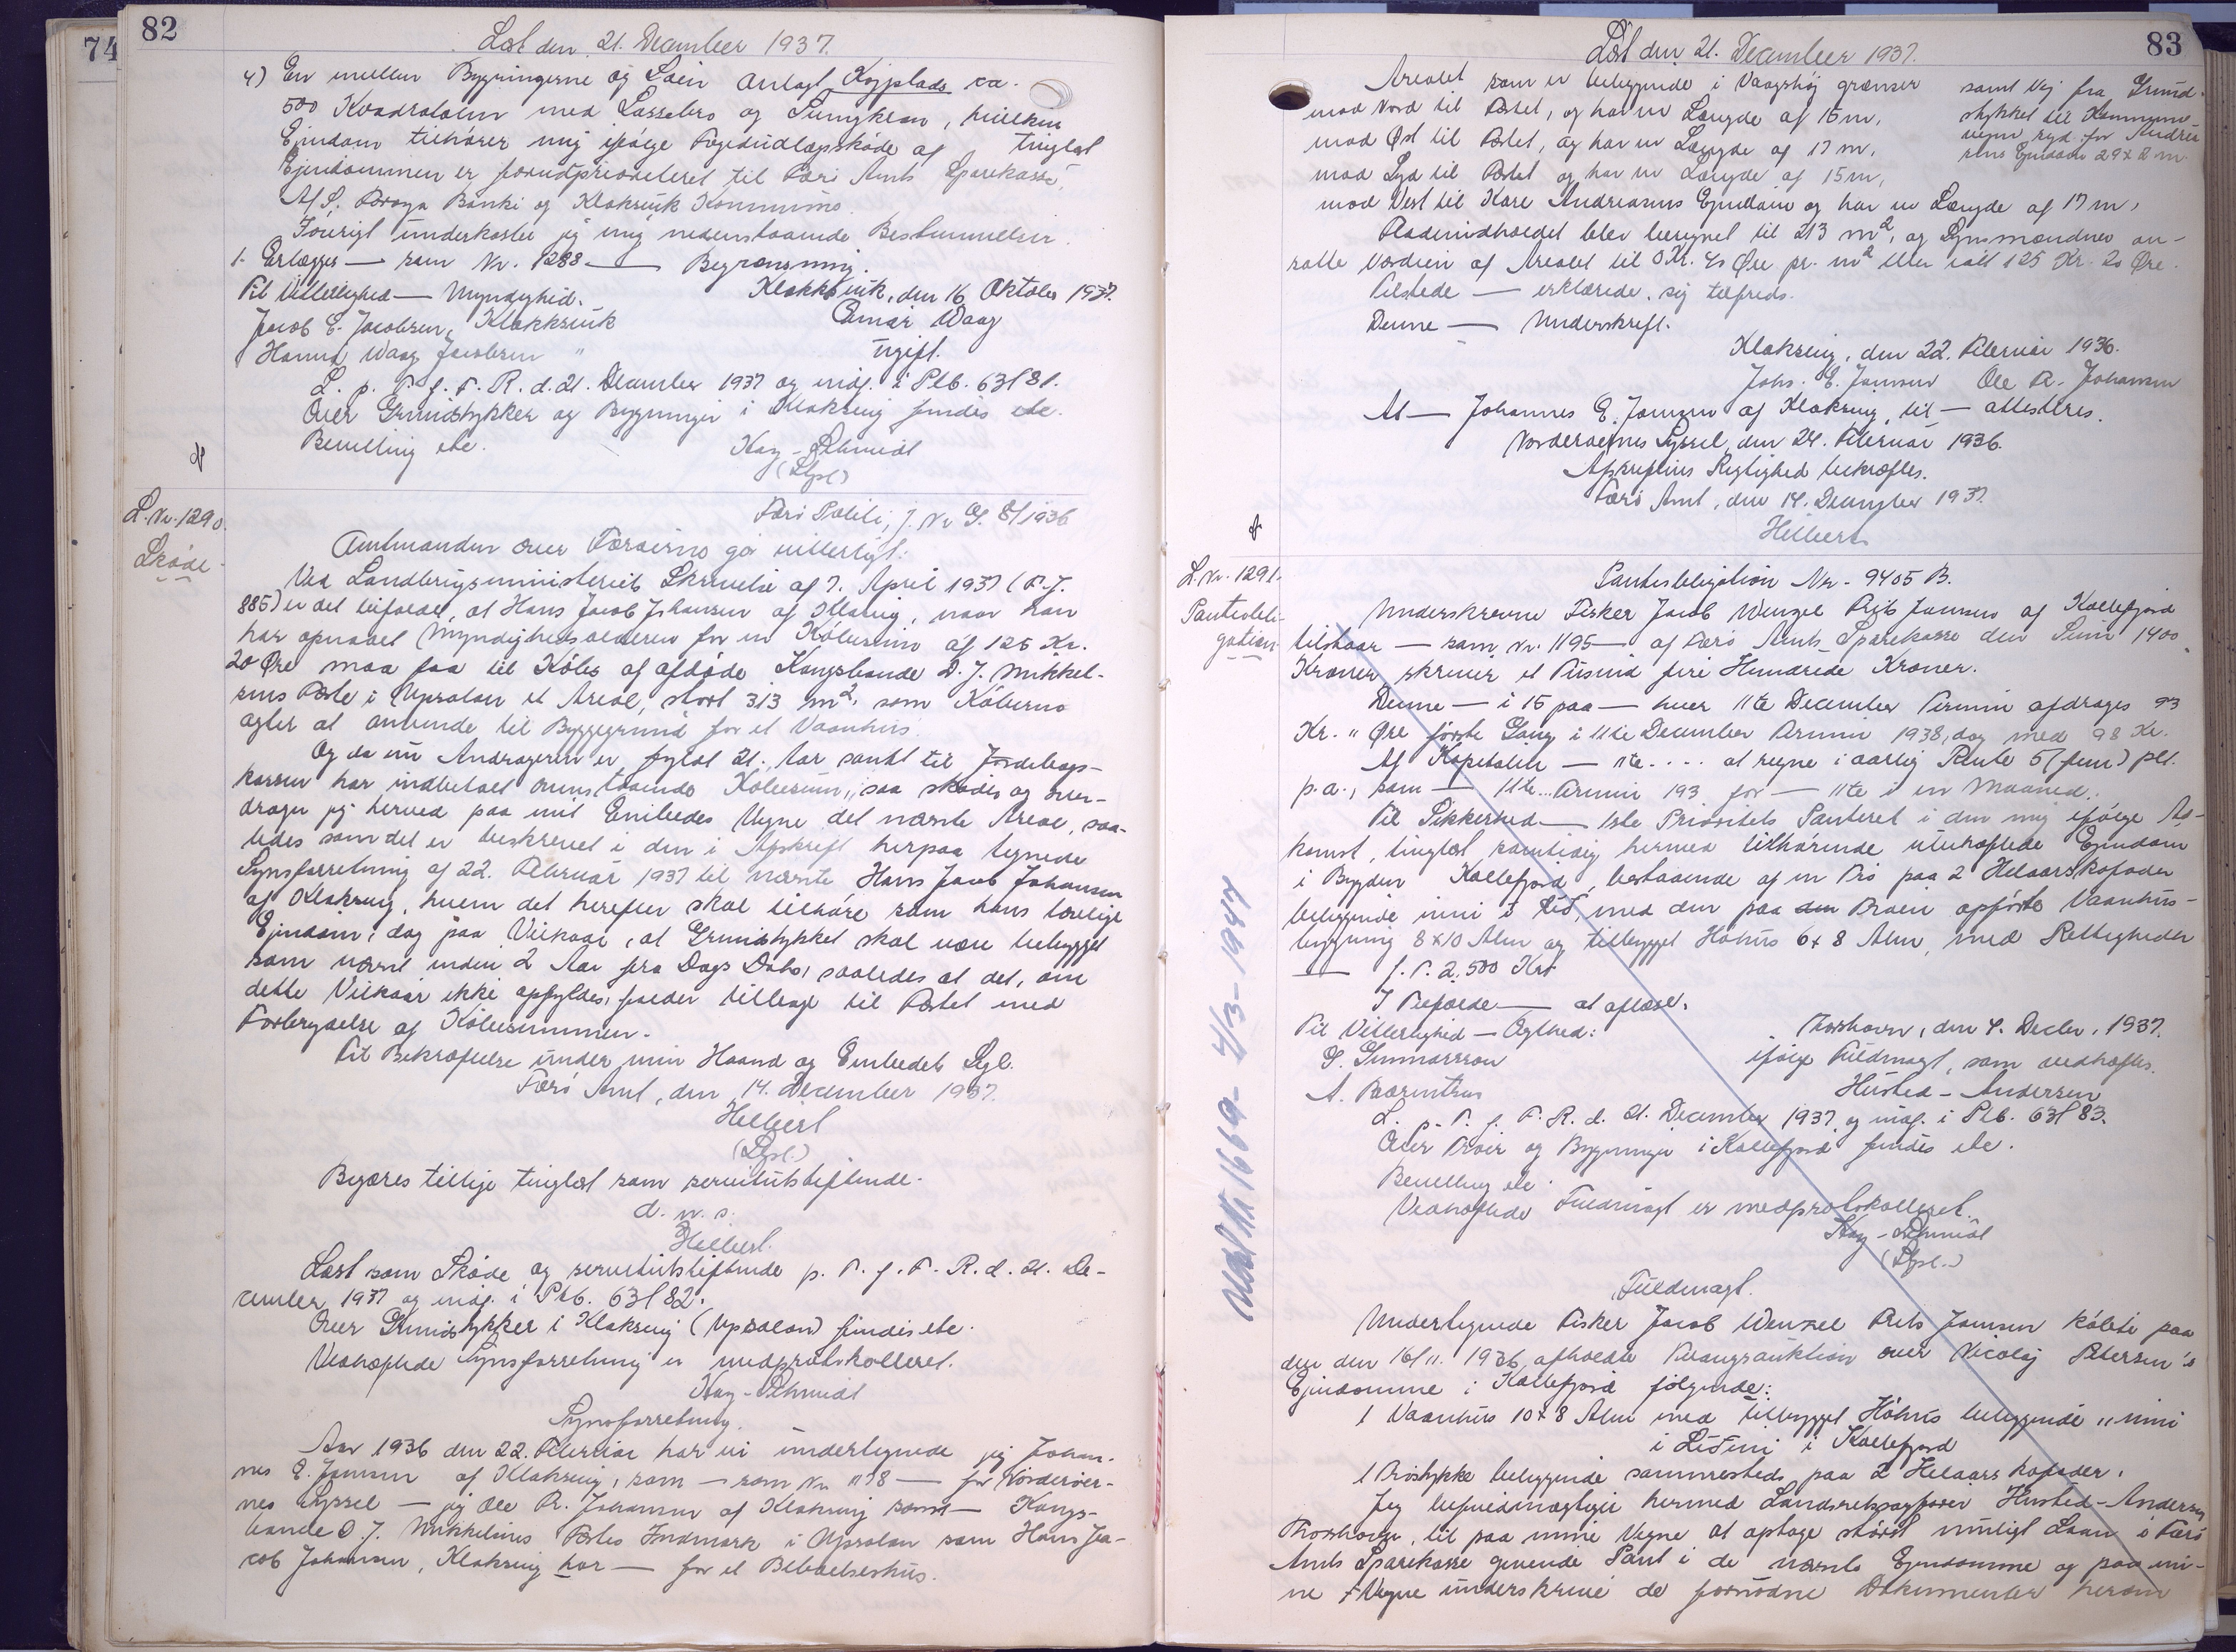 74
82
Læst den 21. December 1937.
4) En mellem Bygningerne og Søen anlagt Kajplads ca.
500 Kvadratalen med Lossebro og Svingkran, hvilken
Ejendom tilhører mig ifølge Fogedudlægsskøde af tinglæst
Ejendommen er forudprioriteret til Færø Amts Sparekasse,
A/S. Føroya Banki og Klaksvik Kommune.
Iøvrigt underkaster jeg mig nedenstaaende Bestemmelser.
1. Erlægges — som Nr. 1288 — Begrænsning.
Til Vitterlighed — Myndighed.
Klakksvik, den 16 Oktober 1937.
Jacob E. Jacobsen, Klakksvik
Einar Waag
Hanna Waag Jacobsen "
ugift.
L. p. T. f. F. R. d. 21. December 1937 og indf. i Ptb. 63/81.
Over Grundstykker og Bygninger i Klaksvig findes etc.
Bevilling etc.
Kay-Schmidt
(Sgl)
L. Nr. 1290.
Skøde
Færø Politi, J. Nr. G. 8/1936
Amtmanden over Færøerne gør vitterligt:
Ved Landbrugsministeriets Skrivelse af 7. April 1937 (F.J.
885) er det tilladt, at Hans Jacob Johansen af Klaksvig, naar han
har opnaaet Myndighedsalderen for en Købesum af 125 Kr.
20 Øre maa faa til Købs af afdøde Kongsbonde D. J. Mikkel-
sens Fæste i Upsalon et Areal, stort 313 m², som Køberen
agter at anvende til Byggegrund for et Vaanhus.
Og da nu Andrageren er fyldt 21. Aar samt til Jordebogs-
kassen har indbetalt ovenstaaende Købesum, saa skøder og over-
drager jeg herved paa mit Embedes Vegne det nævnte Areal, saa-
ledes som det er beskrevet i den i Afskrift herpaa tegnede
Synsforretning af 22. Februar 1937 til nævnte Hans Jacob Johansen
af Klaksvig, hvem det herefter skal tilhøre som hans lovlige
Ejendom, dog paa Vilkaar, at Grundstykket skal være bebygget
som nævnt inden 2 Aar fra Dags Dato, saaledes at det, om
dette Vilkaar ikke opfyldes, falder tilbage til Fæstet med
Fortrydelse af Købesummen.
Til Bekræftelse under min Haand og Embedets Segl.
Færø Amt, den 14. December 1937.
Hilbert
(Sgl.)
Begæres tillige tinglæst som servitutstiftende.
d. u. s.
Hilbert.
Læst som Skøde og servitutstiftende p. T. f. F. R. d. 21. De-
cember 1937 og indf. i Ptb. 63/82.
Over Grundstykker i Klaksvig (Upsalon) findes etc.
Vedhæftede Synsforretning er medprotokolleret.
Kay-Schmidt
Synsforretning.
Aar 1936 den 22. Februar har vi undertegnede jeg Johan-
nes E. Jansen af Klaksvig, som — som Nr. 1178 — for Norderøer-
nes Syssel — jeg Ole R. Johansen af Klaksvig samt — Kongs-
bonde D. J. Mikkelsens Fæstes Indmark i Upsalon som Hans Ja-
cob Johansen, Klaksvig har — for et Beboelseshus.
83
Læst den 21. December 1937.
Arealet som er beliggende i Vaagshøj grænser
mod Nord til Fæstet, og har en Længde af 15 m,
mod Øst til Fæstet, og har en Længde af 17 m,
mod Syd til Fæstet og har en Længde af 15 m,
mod Vest til Kare Andreasens Ejendom og har en Længde af 17 m,
samt Vej fra Grund-
stykket til Kommune-
vejen syd for Andrea-
sens Ejendom 29 x 2 m
Fladeindholdet blev beregnet til 313 m², og Synsmændene an-
satte Værdien af Arealet til 0 Kr. 40 Øre pr. m² eller ialt 125 Kr. 20 Øre.
Tilstede — erklærede sig tilfreds.
Denne — Underskrift.
Klaksvig, den 22. Februar 1936.
Johs. E. Jansen Ole R. Johansen
At — Johannes E. Jansen af Klaksvig, til — attesteres.
Norderøernes Syssel, den 24. Februar 1936.
Afskriftens Rigtighed bekræftes.
Færø Amt, den 14. December 1937.
Hilbert
L. Nr. 1291.
Panteobli-
gation
Pantobligation Nr. 9405 B.
Underskrevne Fisker Jacob Wenzel Frits Jansen af Kollefjord
tilstaar — som Nr. 1195 — af Færø Amts Sparekasse den Sum 1400
Kroner, skriver et Tusind fire Hundrede Kroner.
Denne — i 15 paa — hver 11te December Termin afdrages 93
Kr. " Øre første Gang i 11te December Termin 1938, dog med 98 Kr.
Af Kapitalen — 11te.... at regne i aarlig Rente 5 (fem) pCt.
p.a., som — 11te... Termin 193 for — 11te i en Maaned.
Til Sikkerhed — 1ste Prioritets Panteret i den mig ifølge Ad-
komst, tinglæst samtidig hermed tilhørende ubehæftede Ejendom
i Bygden Kollefjord, bestaaende af en Trø paa 2 Helaarskofoder
beliggende inni i Lið, med den paa den Trøen opførte Vaanhus-
bygning 8x10 Alen og tilbygget Høhus 6x8 Alen, med Rettigheder
— f. T. 2.500 Kr.
I Tilfælde — at aflæse.
Til Vitterlighed — Ægthed:
Thorshavn, den 4. Decbr. 1937.
G. Gunnarsson
ifølge Fuldmagt, som vedhæftes.
A. Bærentsen
Husted-Andersen
L. p. T. f. F. R. d. 21. December 1937 og indf. i Ptb. 63/83.
Over Trøer og Bygninger i Kollefjord findes etc.
Bevilling etc.
Vedhæftede Fuldmagt er medprotokolleret.
Kay-Schmidt
(Sgl.)
Fuldmagt.
Undertegnede Fisker Jacob Wenzel Frits Jansen købte paa
den den 16/11. 1936 afholdte Tvangsauktion over Nicolaj Petersen's
Ejendomme i Kollefjord følgende:
1 Vaanhus 10x8 Alen med tilbygget Høhus beliggende "inni
i Liðini i Kollefjord
1 Trøstykke beliggende sammesteds paa 2 Helaars kofoder.
Jeg befuldmægtiger hermed Landsretssagfører Husted-Andersen
Thorshavn, til paa mine Vegne at optage størst muligt Laan i Færø
Amts Sparekasse givende Pant i de nævnte Ejendomme og paa mi-
ne Vegne underskrive de fornødne Dokumenter herom